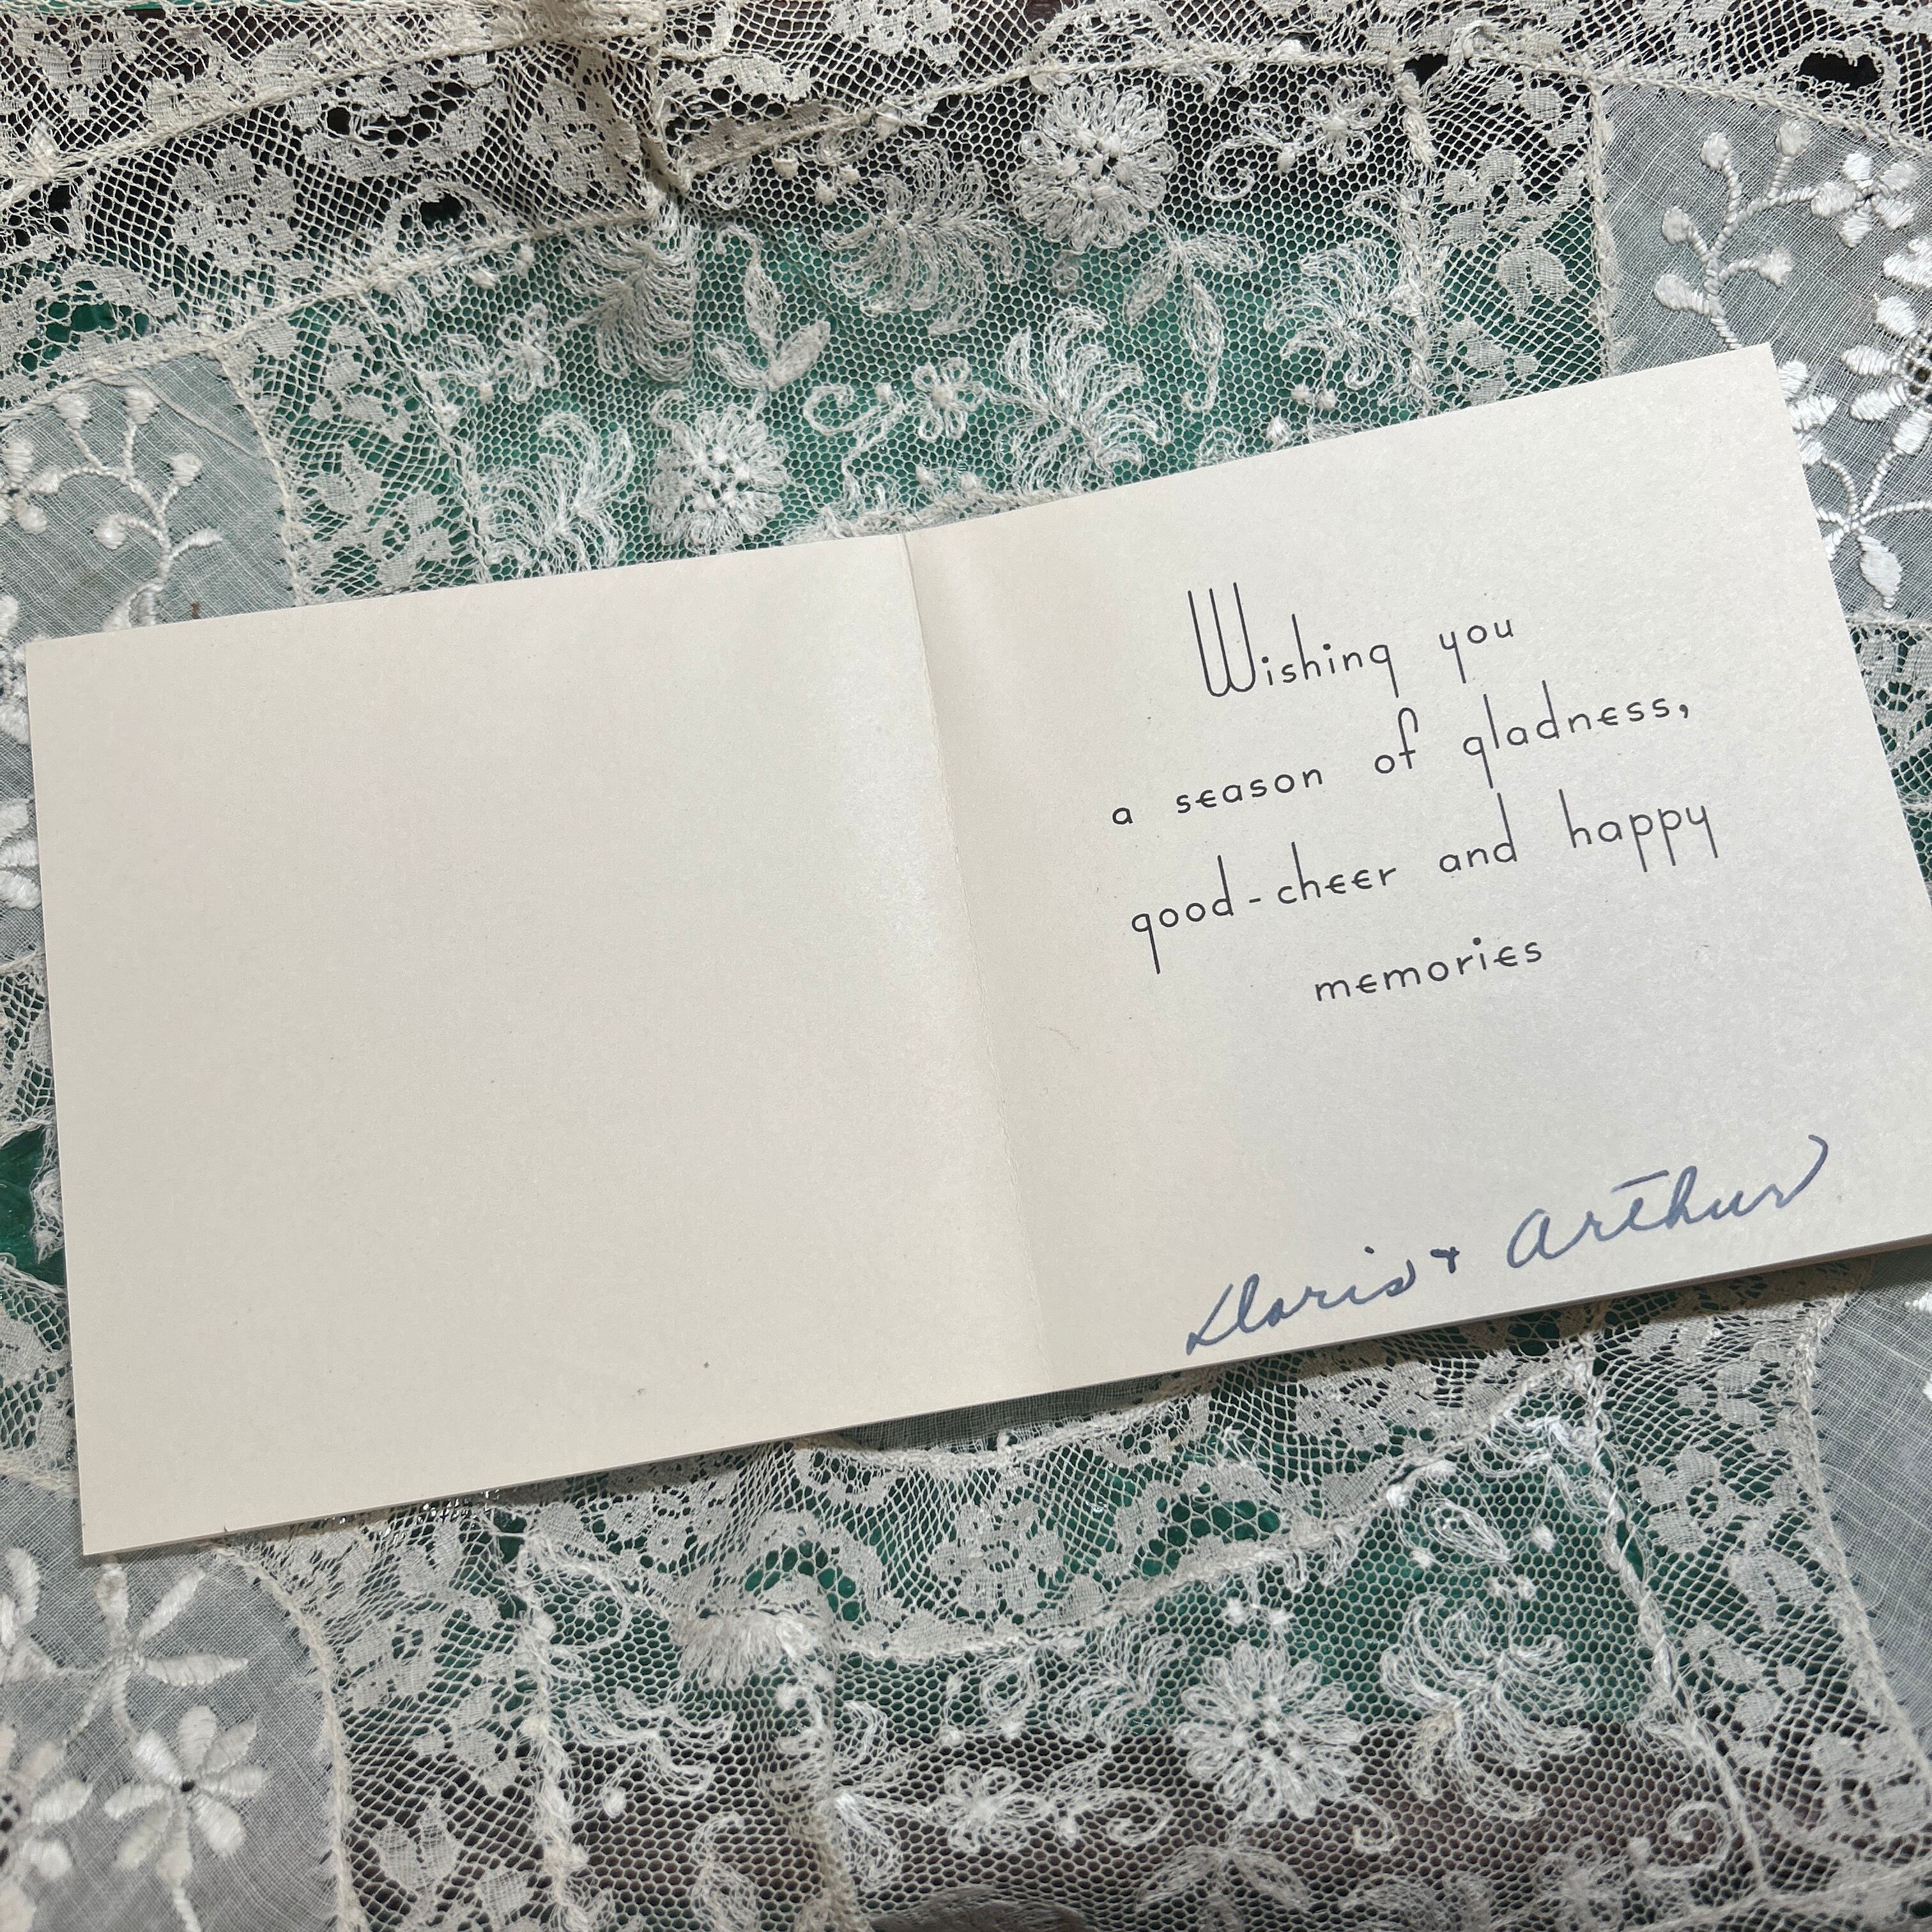 Wishing you
a season of gladness,
good-cheer and happy
memories
Doris + Arthur